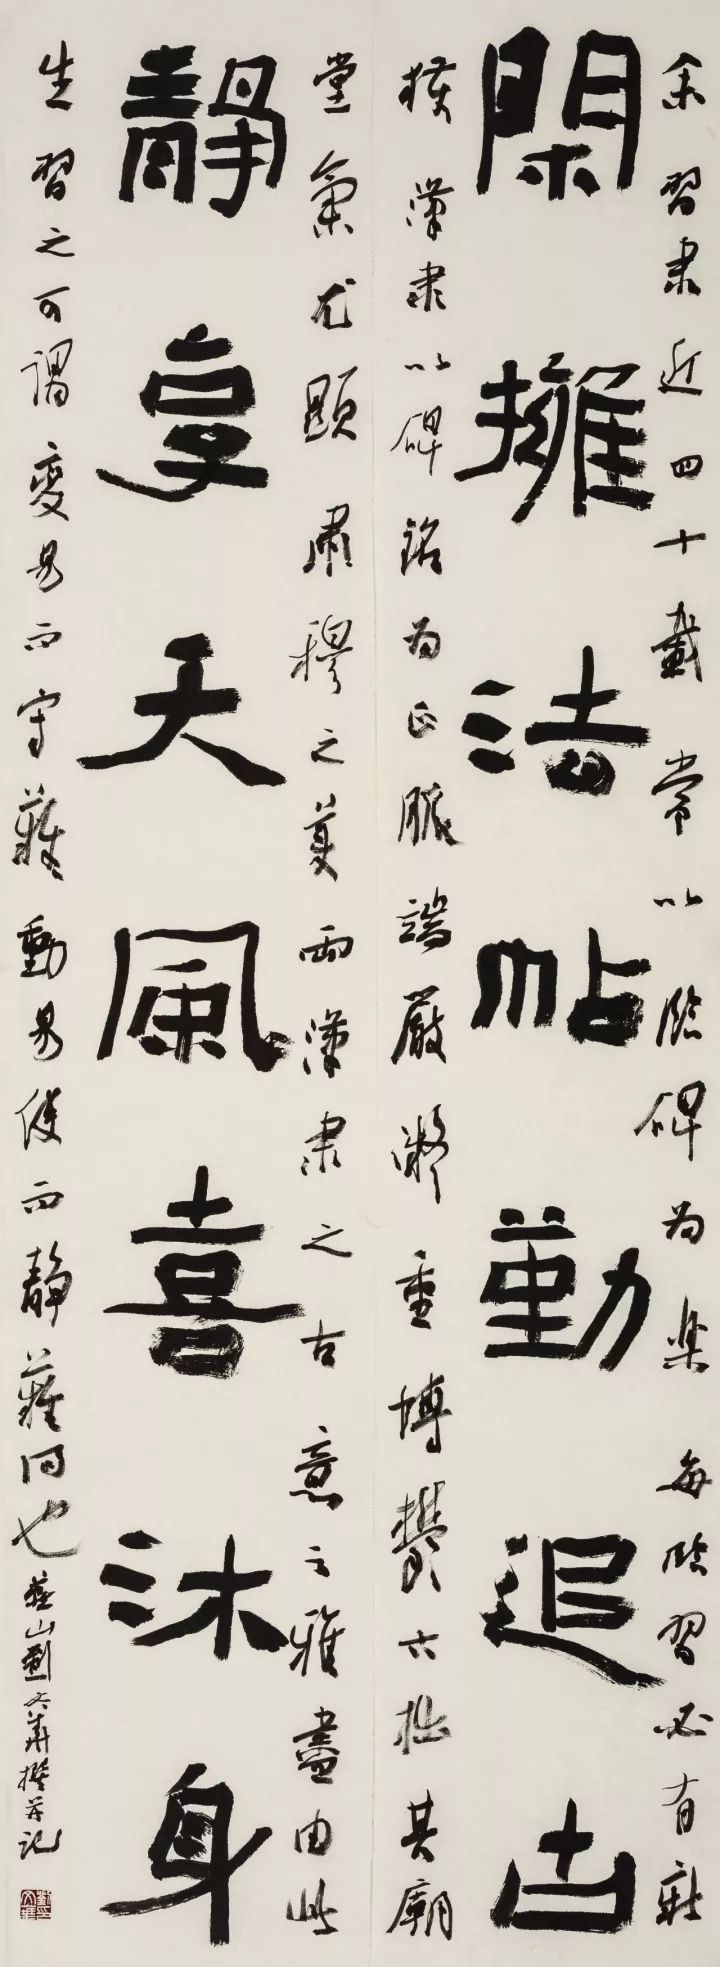 余習隶近四十載常以臨碑為樂每臨習必有新
閑擁法帖勤追古
獲漢隶以碑銘為正脈端嚴凝重博贊六拙其廟
堂氣尤顯肅穆之美而漢隶之古意之雅盡由此
靜享天風喜沐身
生習之可謂變易而守難動易後而靜難同也燕山劉文華撰并記